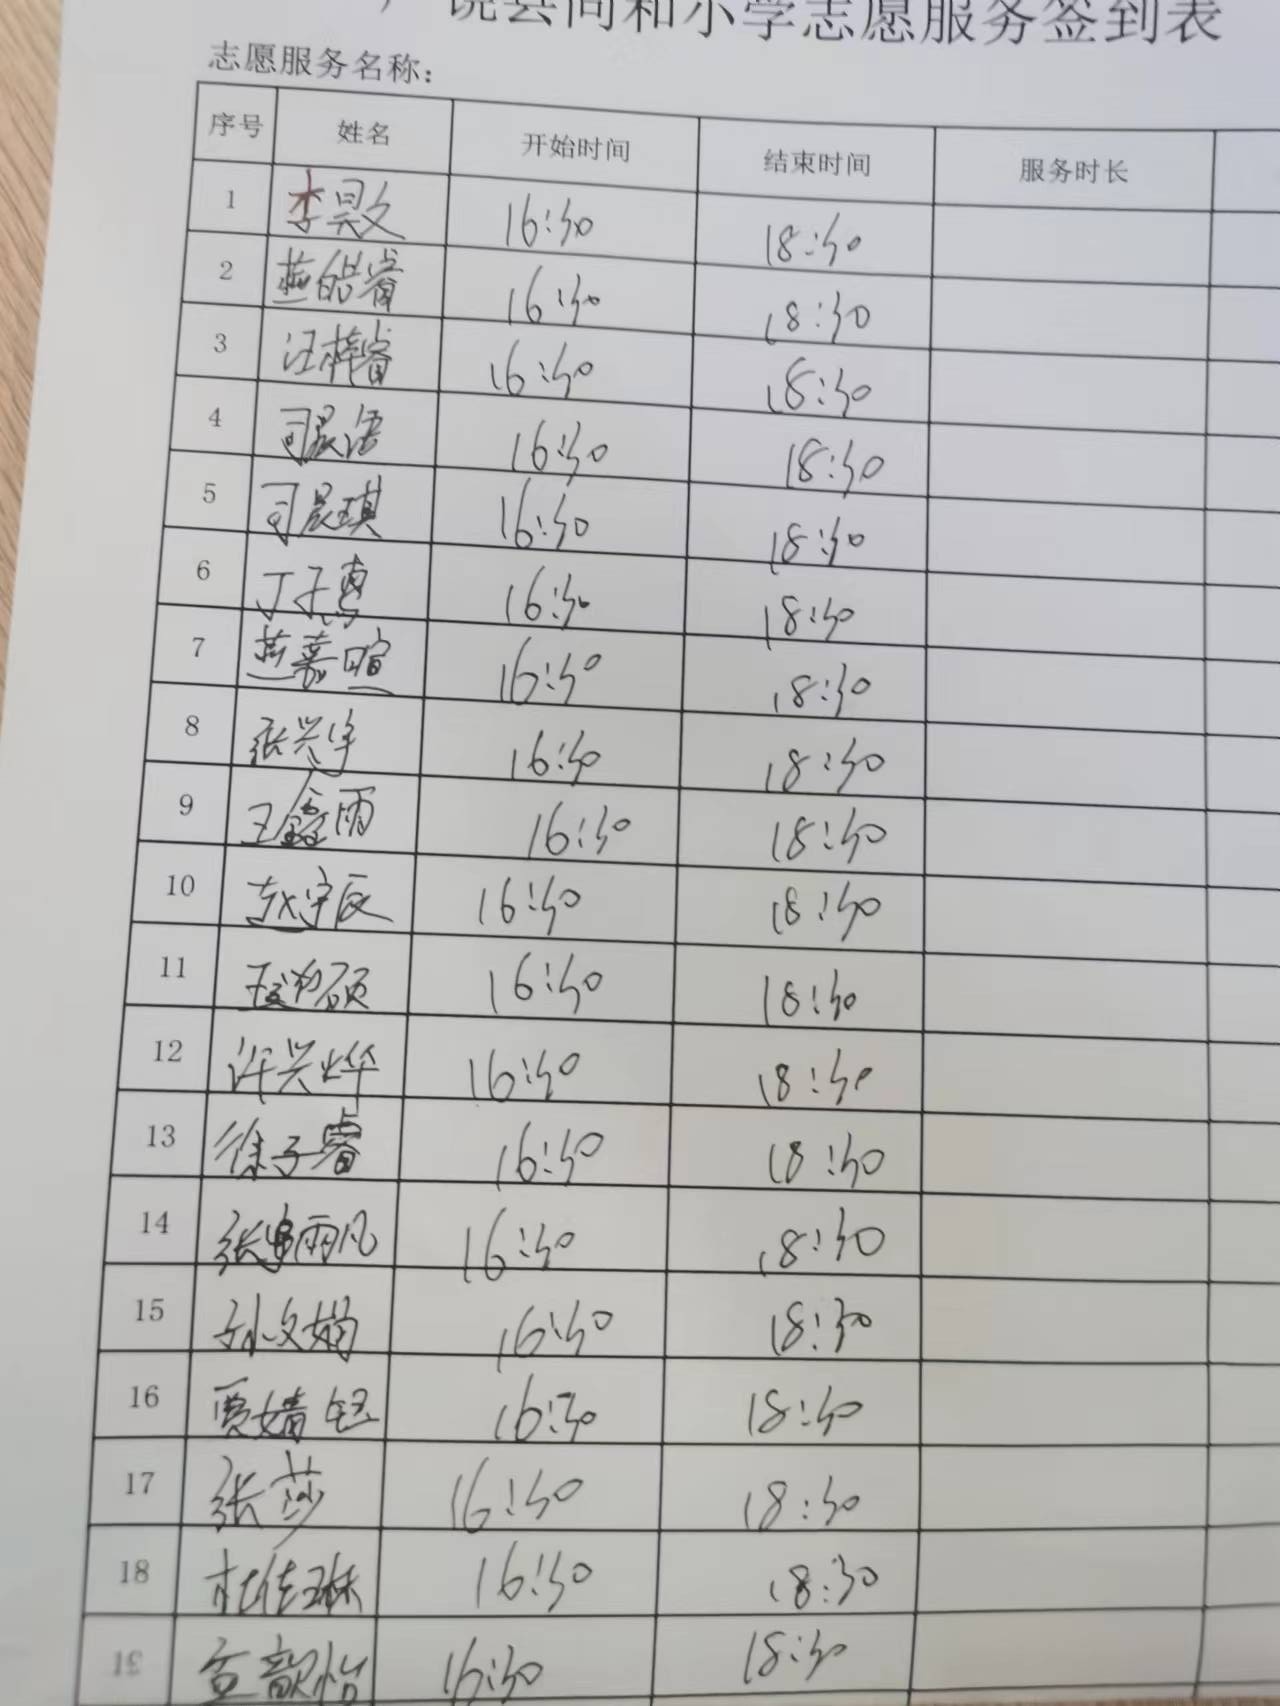 饶县同和小学志愿服务签到表
志愿服务名称：
序号 姓名 开始时间 结束时间 服务时长
1 李昊文 16:30 18:30
2 燕皓睿 16:30 18:30
3 汪梓睿 16:30 18:30
4 司晨语 16:30 18:30
5 司晨琪 16:30 18:30
6 丁子 16:30 18:30
7 燕嘉暄 16:30 18:30
8 张兴宇 16:30 18:30
9 王鑫雨 16:30 18:30
10 赵宇辰 16:30 18:30
11 16:30 18:30
12 许兴烨 16:30 18:30
13 徐子睿 16:30 18:30
14 张 雨凡 16:30 18:30
15 孙文娟 16:30 18:30
16 贾婧钰 16:30 18:30
17 张莎 16:30 18:30
18 杜佳琳 16:30 18:30
19 孟歆怡 16:30 18:30